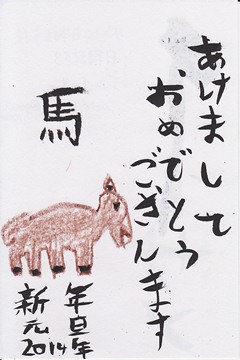 あけまして
おめでとう
ございます
馬
新年
元旦
2014年